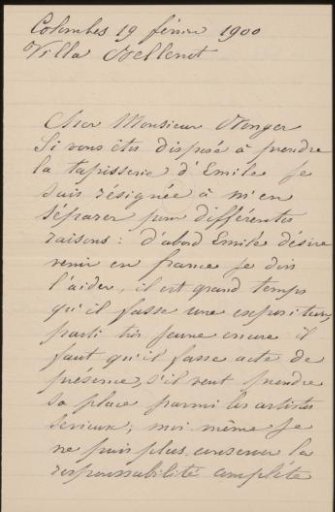 Colombes 19 février 1900
Villa Bellenot
Cher Monsieur
Si vous êtes disposé à prendre
la tapisserie d'Emile je
suis résignée à m'en
séparer pour différentes
raisons : d'abord Emile désire
venir en france je dois
l'aider, il est grand temps
qu'il fasse une exposition,
parti très jeune encore il
faut qu'il fasse acte de
présence, s'il veut prendre
sa place parmi les artistes
serieux, moi même je
ne puis plus conserver la
responsabilité complète